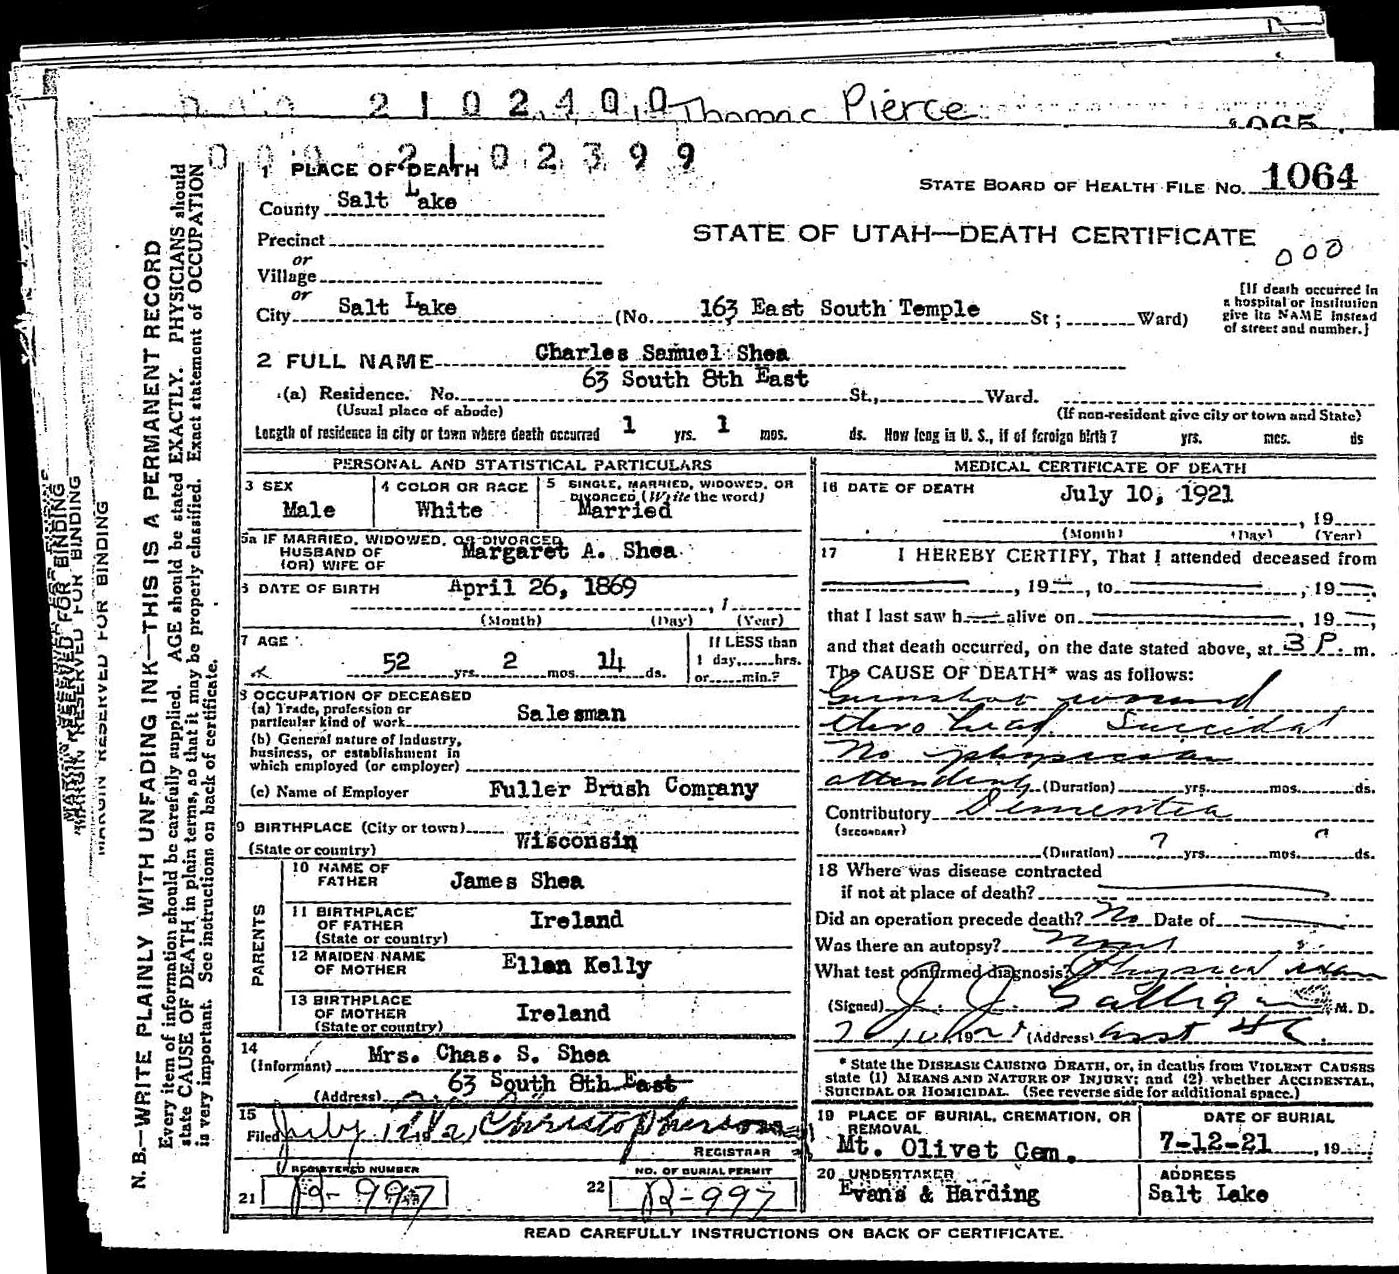 0 0 0 2 1 0 2 4 0 0 Thomas Pierce
1065
0 0 0 2 1 0 2 3 9 9
1 PLACE OF DEATH
STATE BOARD OF HEALTH FILE NO. 1064
County Salt Lake
STATE OF UTAH—DEATH CERTIFICATE
000
Precinct
or
Village
or
City Salt Lake (No. 163 East South Temple St; Ward)
[If death occurred in
a hospital or institution
give its NAME instead
of street and number.]
2 FULL NAME Charles Samuel Shea
(a) Residence. No. 63 South 8th East St., Ward.
(Usual place of abode) (If non-resident give city or town and State)
Length of residence in city or town where death occurred 1 yrs. 1 mos. ds. How long in U. S., if of foreign birth? yrs. mos. ds
PERSONAL AND STATISTICAL PARTICULARS
3 SEX
Male
4 COLOR OR RACE
White
5 SINGLE, MARRIED, WIDOWED, OR
DIVORCED (Write the word)
Married
5a IF MARRIED, WIDOWED, OR DIVORCED
HUSBAND OF Margaret A. Shea
(OR) WIFE OF
6 DATE OF BIRTH April 26, 1869
, 1
(Month) (Day) (Year)
7 AGE
52 yrs. 2 mos. 14 ds.
If LESS than
1 day, hrs.
or min.?
8 OCCUPATION OF DECEASED
(a) Trade, profession or
particular kind of work Salesman
(b) General nature of Industry,
business, or establishment in
which employed (or employer)
(c) Name of Employer Fuller Brush Company
9 BIRTHPLACE (City or town)
(State or country) Wisconsin
PARENTS
10 NAME OF
FATHER James Shea
11 BIRTHPLACE
OF FATHER Ireland
(State or country)
12 MAIDEN NAME
OF MOTHER Ellen Kelly
13 BIRTHPLACE
OF MOTHER Ireland
(State or country)
14
(Informant) Mrs. Chas. S. Shea
(Address) 63 South 8th East
15
Filed July 12 1921 Christopherson
REGISTRAR
REGISTERED NUMBER
21 R-997
NO. OF BURIAL PERMIT
22 R-997
MEDICAL CERTIFICATE OF DEATH
16 DATE OF DEATH July 10, 1921
, 19
(Month) (Day) (Year)
17 I HEREBY CERTIFY, That I attended deceased from
, 19 , to , 19 ,
that I last saw h alive on , 19 ,
and that death occurred, on the date stated above, at 3 P. m.
The CAUSE OF DEATH* was as follows:
Gunshot wound
thro head. Suicidal
No physician
attending (Duration) yrs. mos. ds.
Contributory Dementia
(SECONDARY)
(Duration) ? yrs. mos. ? ds.
18 Where was disease contracted
if not at place of death?
Did an operation precede death? No Date of
Was there an autopsy? None
What test confirmed diagnosis? Physical exam
(Signed) J. J. Galligan M. D.
7 10 1921 (Address)
* State the DISEASE CAUSING DEATH, or, in deaths from VIOLENT CAUSES
state (1) MEANS AND NATURE OF INJURY; and (2) whether ACCIDENTAL,
SUICIDAL OR HOMICIDAL. (See reverse side for additional space.)
19 PLACE OF BURIAL, CREMATION, OR
REMOVAL
Mt. Olivet Cem.
DATE OF BURIAL
7-12-21 , 19
20 UNDERTAKER
Evans & Harding
ADDRESS
Salt Lake
READ CAREFULLY INSTRUCTIONS ON BACK OF CERTIFICATE.
MARGIN RESERVED FOR BINDING
MARGIN RESERVED FOR BINDING
MARGIN RESERVED FOR BINDING
N. B.—WRITE PLAINLY WITH UNFADING INK—THIS IS A PERMANENT RECORD
Every item of information should be carefully supplied. AGE should be stated EXACTLY. PHYSICIANS should
state CAUSE OF DEATH in plain terms, so that it may be properly classified. Exact statement of OCCUPATION
is very important. See instructions on back of certificate.